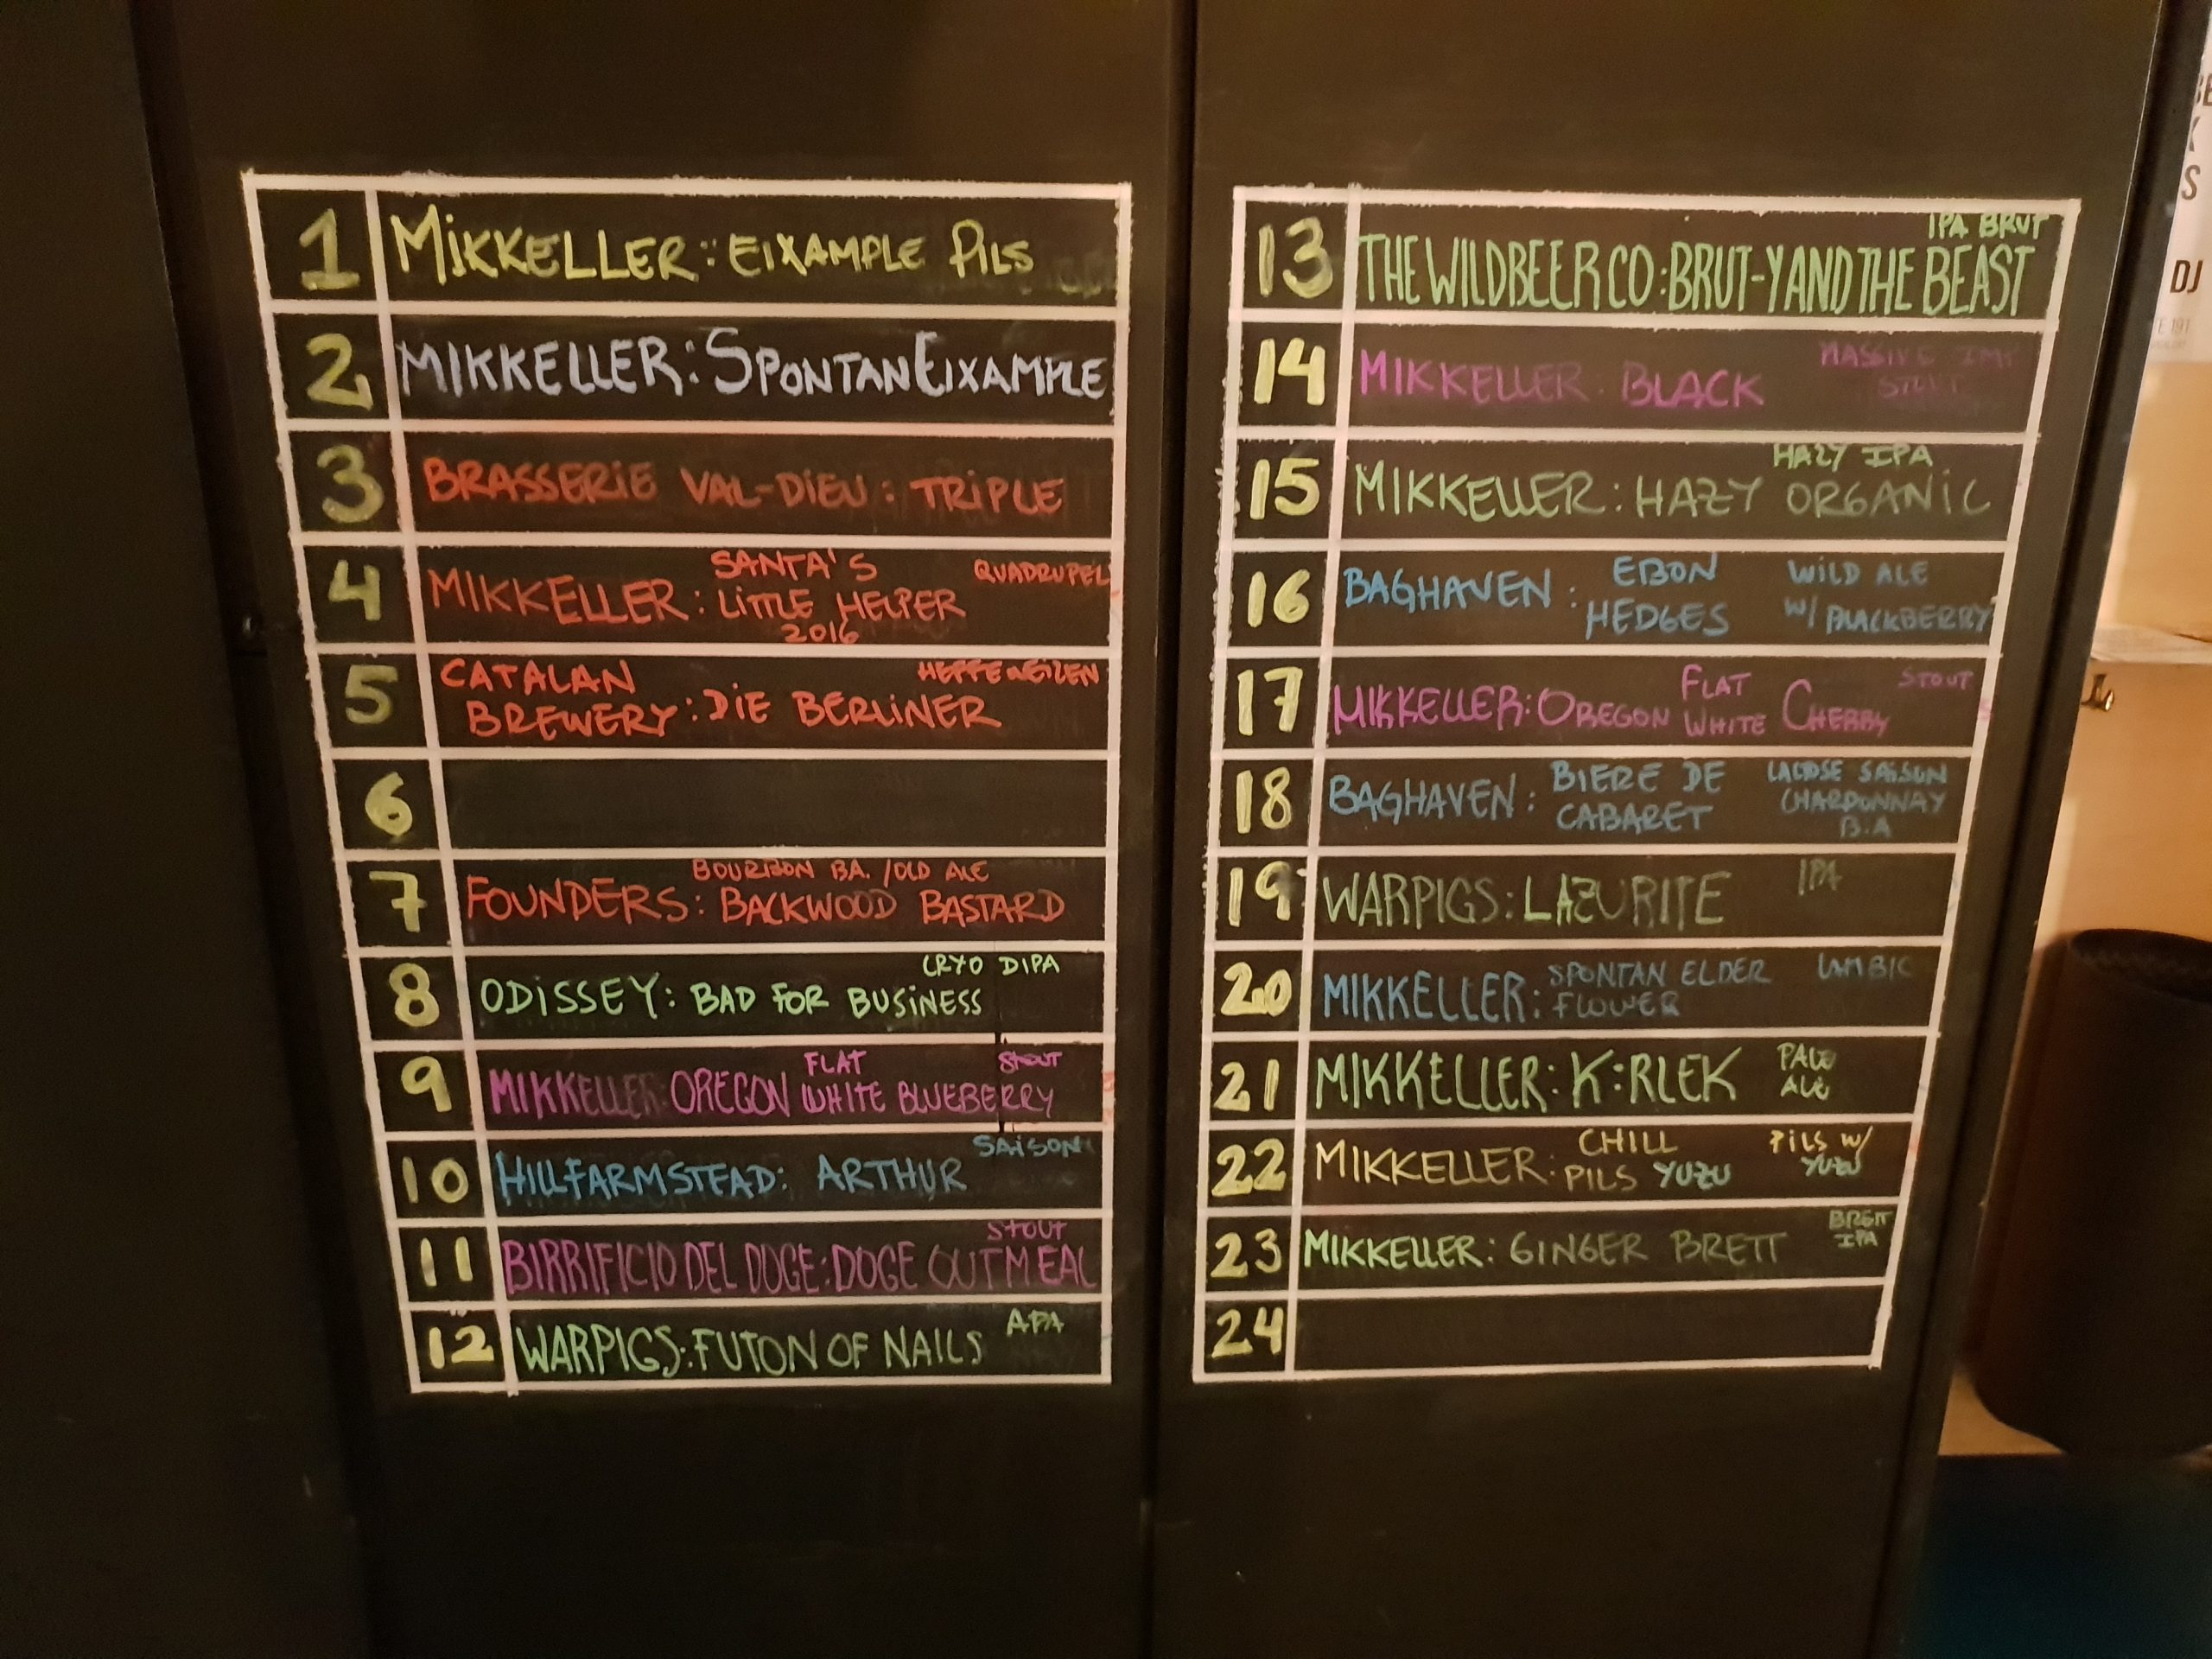 1 MIKKELLER: EIXAMPLE PILS
2 MIKKELLER: SPONTANEIXAMPLE
3 BRASSERIE VAL-DIEU: TRIPLE
4 MIKKELLER: SANTA'S LITTLE HELPER 2016 QUADRUPEL
5 CATALAN BREWERY: DIE BERLINER HEFFEWEIZEN
6
7 FOUNDERS: BACKWOOD BASTARD BOURBON BA. /OLD ALE
8 ODISSEY: BAD FOR BUSINESS CRYO DIPA
9 MIKKELLER: OREGON FLAT WHITE BLUEBERRY STOUT
10 HILLFARMSTEAD: ARTHUR SAISON
11 BIRRIFICIO DEL DOGE: DOGE OUTMEAL STOUT
12 WARPIGS: FUTON OF NAILS APA
13 THE WILDBEER CO: BRUT-Y AND THE BEAST IPA BRUT
14 MIKKELLER: BLACK MASSIVE IMP STOUT
15 MIKKELLER: HAZY ORGANIC HAZY IPA
16 BAGHAVEN: EBON HEDGES WILD ALE W/ BLACKBERRY
17 MIKKELLER: OREGON FLAT WHITE CHERRY STOUT
18 BAGHAVEN: BIERE DE CABARET LACTOSE SAISON CHARDONNAY B.A
19 WARPIGS: LAZURITE IPA
20 MIKKELLER: SPONTAN ELDER FLOWER LAMBIC
21 MIKKELLER: K:RLEK PALE ALE
22 MIKKELLER: CHILL PILS YUZU PILS W/ YUZU
23 MIKKELLER: GINGER BRETT BRETT IPA
24
DJ